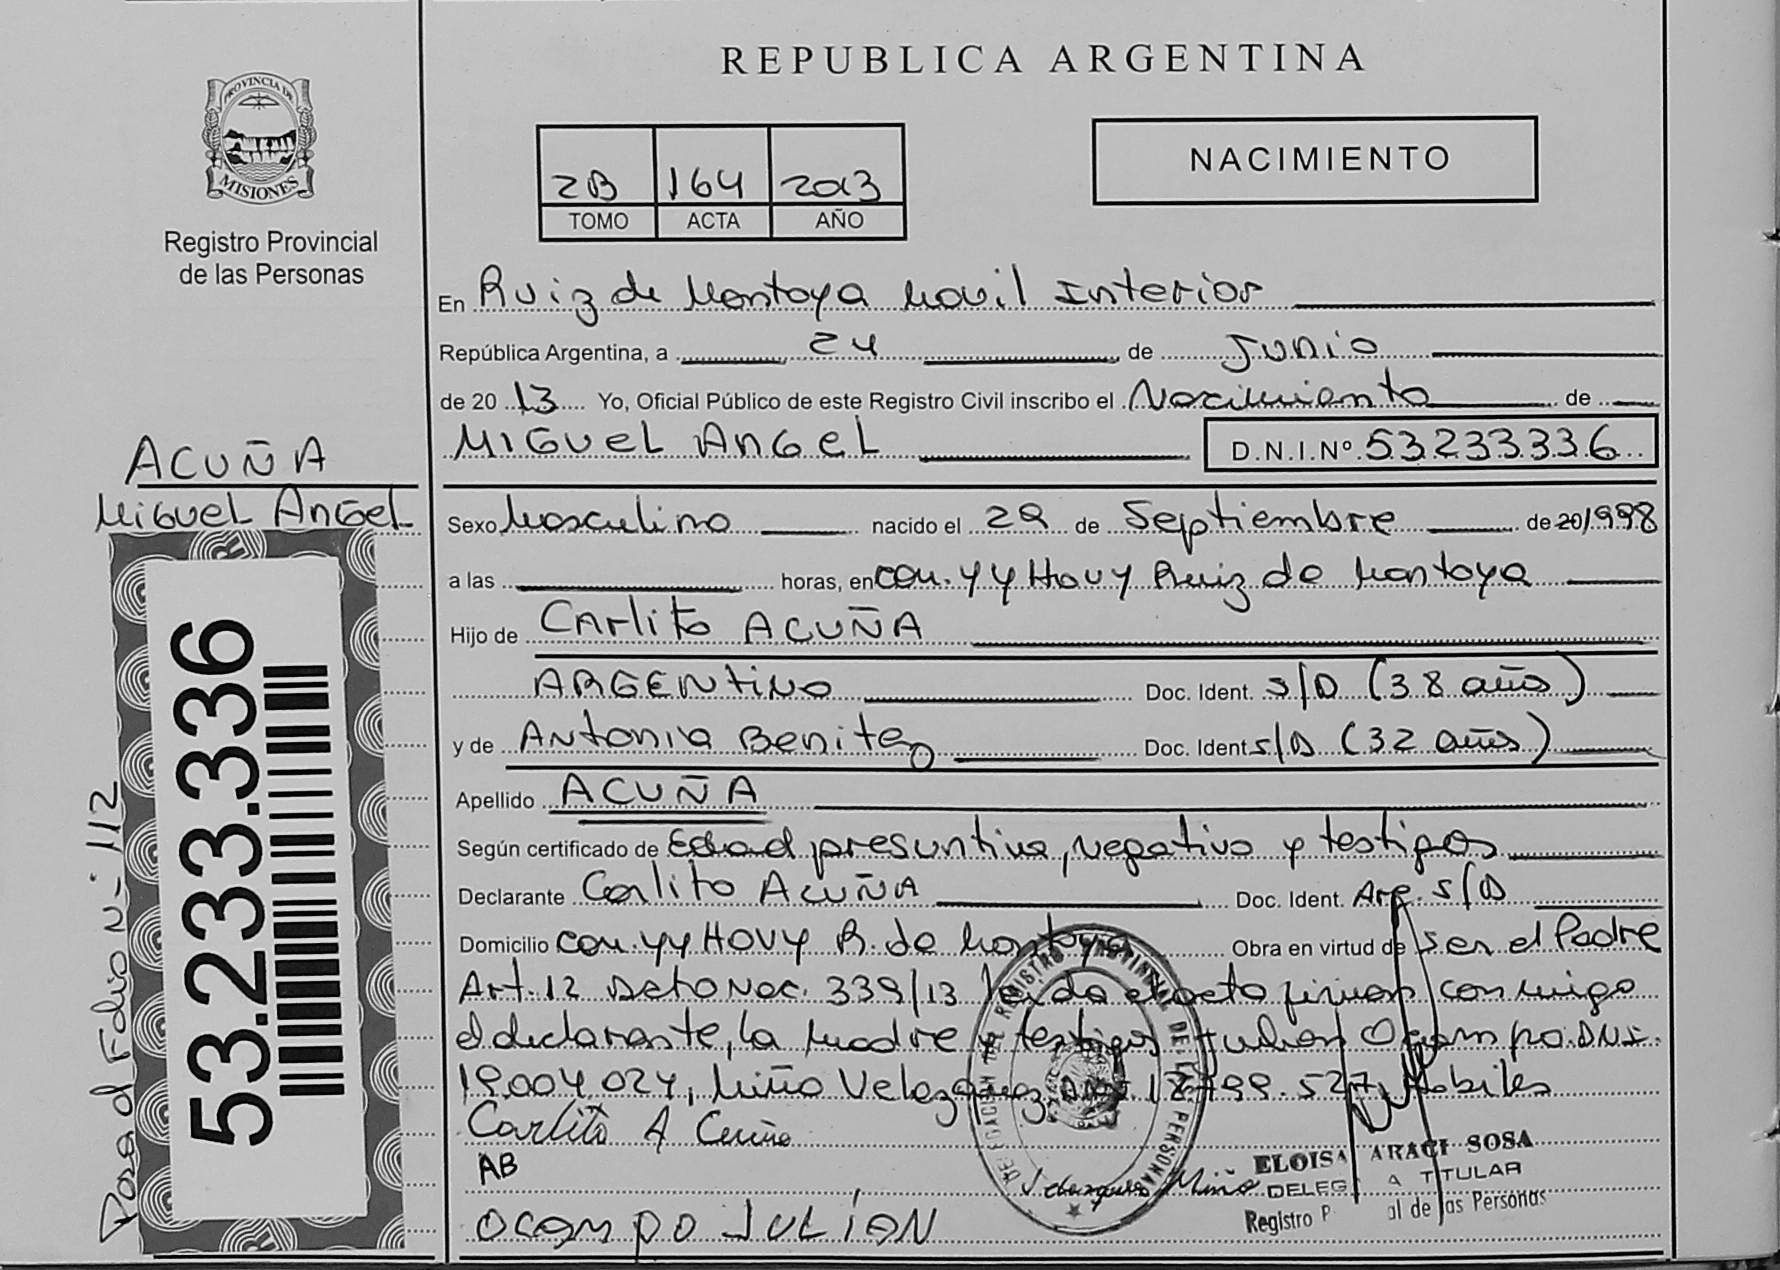 REPUBLICA ARGENTINA
PROVINCIA DE
MISIONES
Registro Provincial
de las Personas
2B 164 2013
TOMO ACTA AÑO
NACIMIENTO
En Ruiz de Montoya Movil Interior
República Argentina, a 24 de Junio
de 20 13 Yo, Oficial Público de este Registro Civil inscribo el Nacimiento de
MIGUEL ANGEL D.N.I.Nº 53233336
ACUÑA
MIGUEL ANGEL
Sexo Masculino nacido el 29 de Septiembre de 20/1998
a las horas, en com. YYHOVY Ruiz de Montoya
Hijo de Carlito ACUÑA
ARGENTINO Doc. Ident. S/D (38 años)
y de Antonia Benitez Doc. Ident S/D (32 años)
Apellido ACUÑA
Según certificado de Edad presuntiva, negativo y testigos
Declarante Carlito ACUÑA Doc. Ident. Arg. S/D
Domicilio com. YYHOVY R. de Montoya Obra en virtud de ser el Padre
Art. 12 Nac. 339/13 Leida el acta firman conmigo
el declarante, la Madre y testigos Julian Ocampo. DNI.
19.004.024, Miño Velazquez Habiles
Carlito A Cuña
AB
Velazquez Miño
OCAMPO JULIAN
ELOISA ARACI SOSA
DELEG A TITULAR
Registro P al de las Personas
53.233.336
Pasa al Folio N- 112